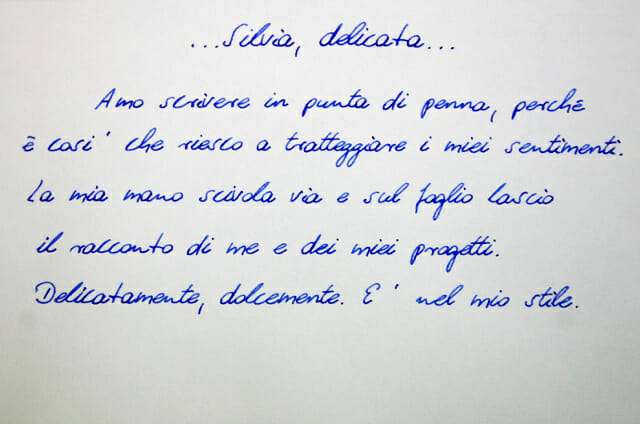 ...Silvia, delicata...
Amo scrivere in punta di penna, perchè
è cosi' che riesco a tratteggiare i miei sentimenti.
La mia mano scivola via e sul foglio lascio
il racconto di me e dei miei progetti.
Delicatamente, dolcemente. E' nel mio stile.